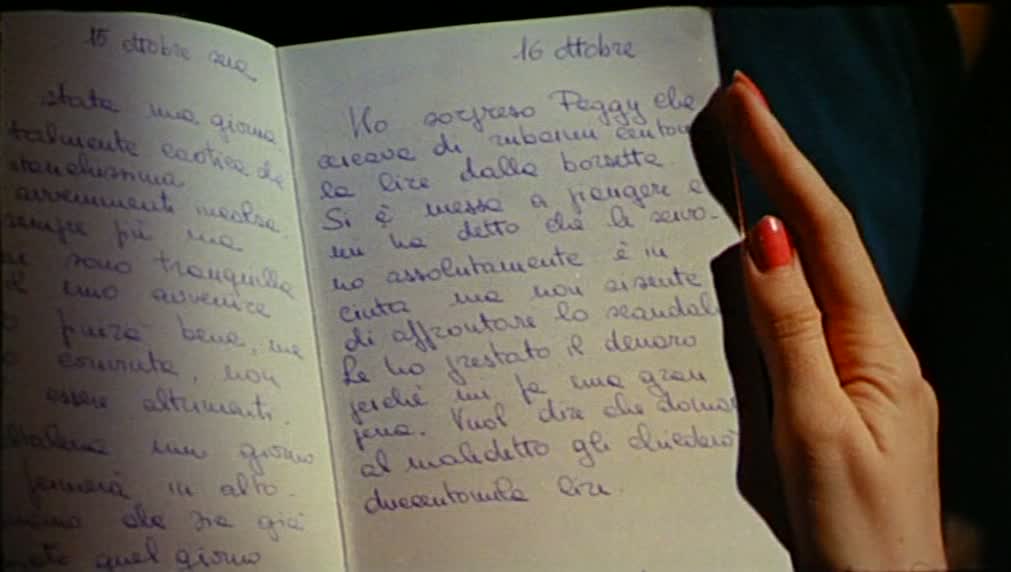 15 ottobre sera
stata una giorna
talmente caotica da
stanchissima
avvenimenti
sempre più una
sono tranquilla
il mio avvenire
bene, ma
convinta, non
essere altrimenti.
un giorno
fermerà in alto.
che sia già
quel giorno
16 ottobre
Ho sorpreso Peggy che
cercava di rubarmi centomi
la lire dalla borsetta.
Si è messa a piangere e
mi ha detto che le servo-
no assolutamente è in
cinta ma non si sente
di affrontare lo scandalo
Le ho prestato il denaro
perché mi fa una gran
pena. Vuol dire che doman
al maledetto gli chiederò
duecentomila lire.